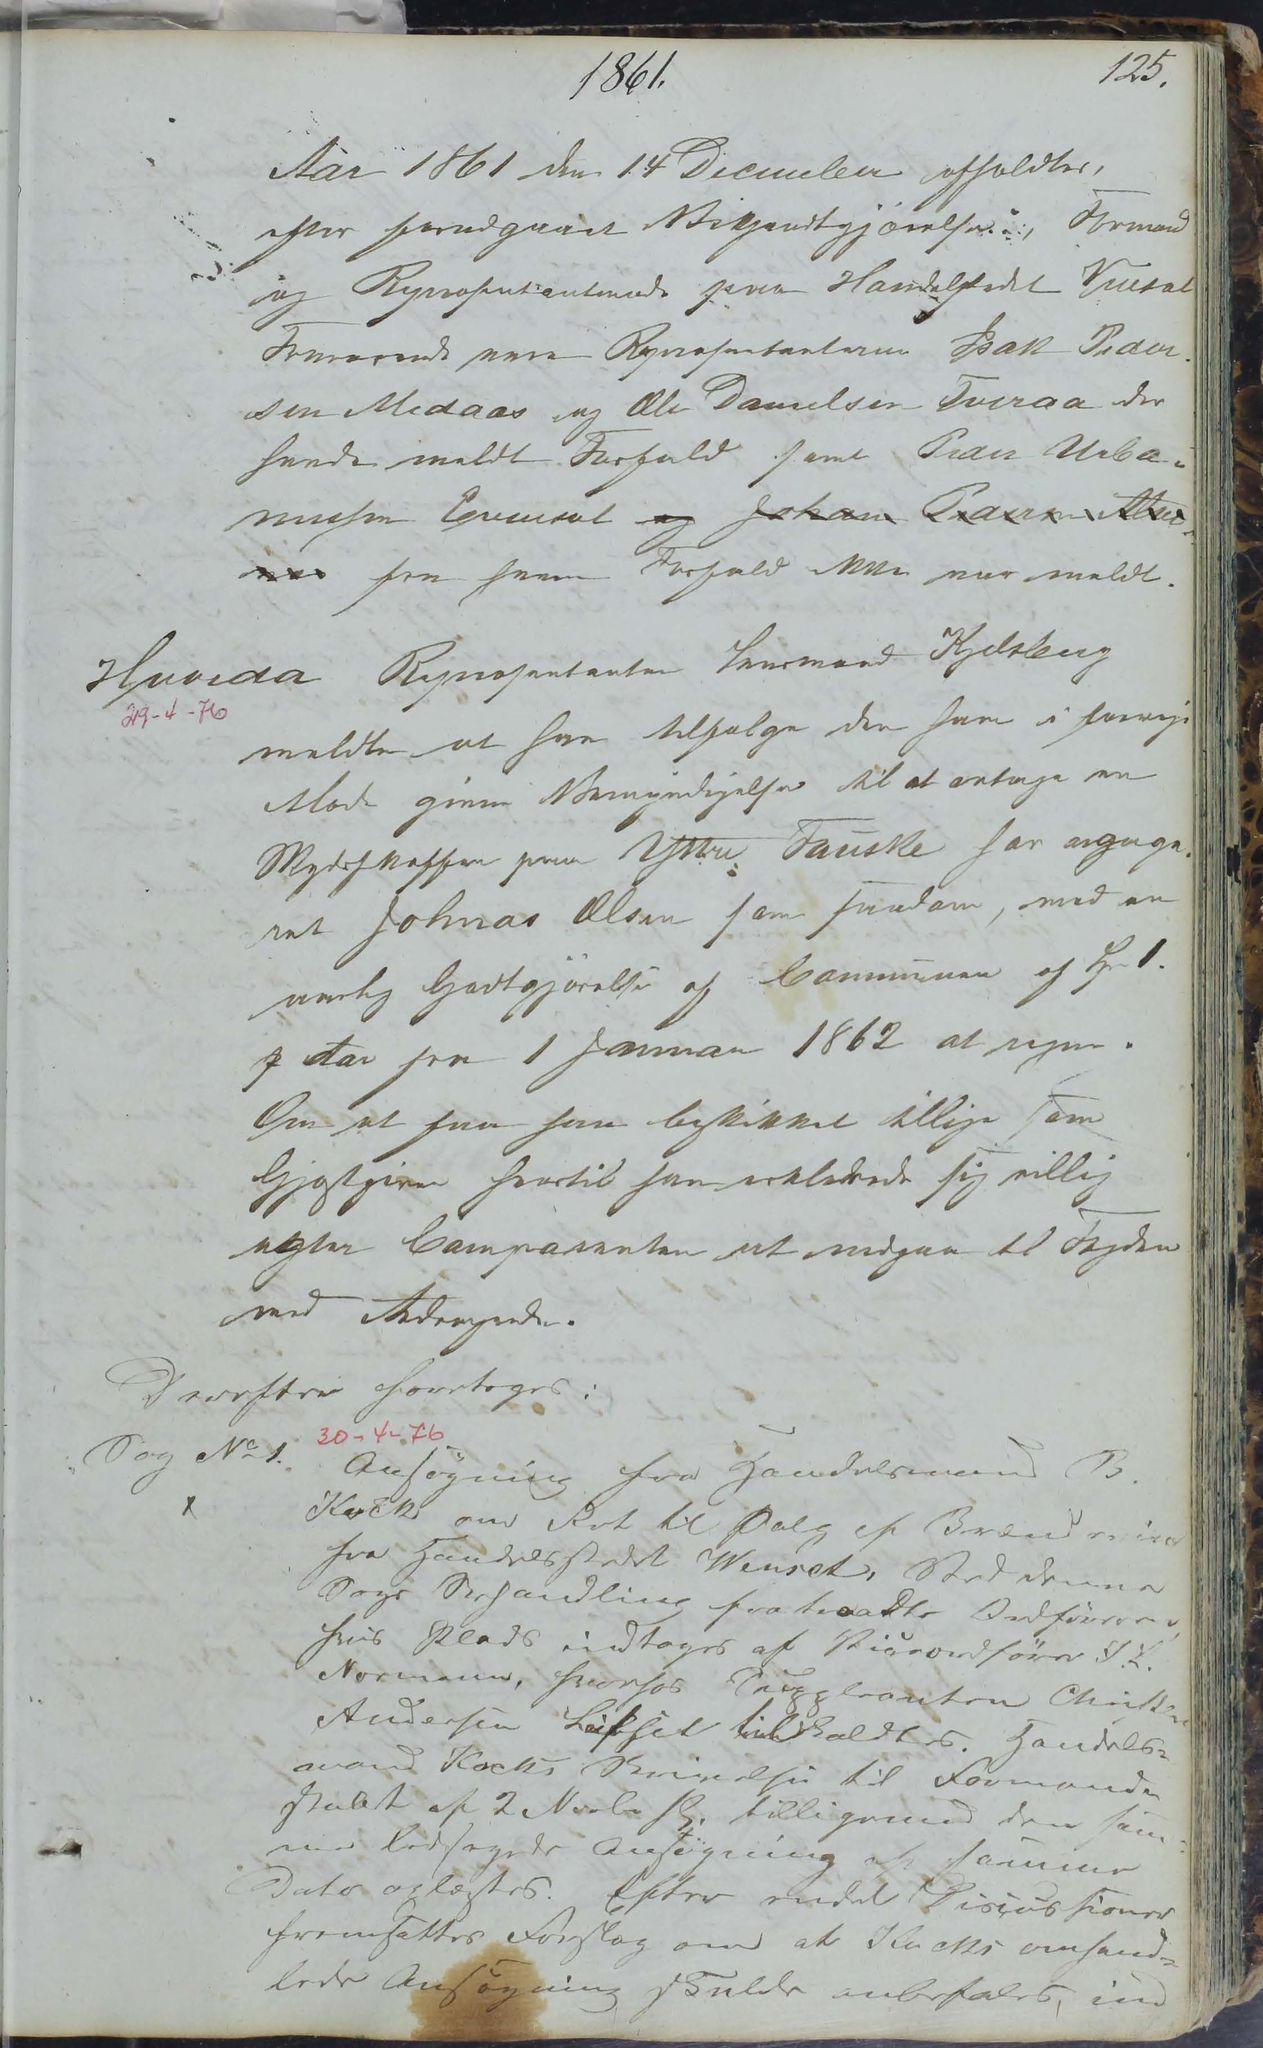 1861.
125.
Aar 1861 den 14 December afholdtes,
efter forudgaaet Bekjendtgjørelse, Formand
og Repræsentantmøde paa Handelstedet Venset
Fraværende vare Repræsentanterne Isak Peder-
sen Medaas og Ole Danielsen Tveraa der
havde meldt Forfald samt Peder Urba-
nussen Evenset og Johan Pedersen
fra hvem Forfald ikke var meldt.
Hvorda Repræsentanten Lensmand Kjelsberg
29-4-76
meldte at han tilfølge den ham i forrige
Møde givne Bemyndigelse til at antage en
Skydsskaffer paa Yttre Fauske har engage-
ret Johnas Olsen som saadan, med en
aarlig Godtgjørelse af Communen af 1.
pr Aar fra 1 Januar 1862 at regne.
Om at faa ham beskikket tillige som
Gjæstgiver hvortil han erklærede sig villig
agter Comparenten at indgaa til Fogden
med Andragende.
Derefter foretoges:
Sag No 1. 30-4-76
Ansøgning fra Handelsmand B.
x Koch om Ret til Salg af Brændeviin
fra Handelsstedet Wenset. Ved denne
Sags Behandling fratraadte Ordføreren,
hvis Plads indtoges af Viceordfører J. L.
Normann, hvorhos Suppleanten Christen
Andersen Leifset tilkaldtes. Handels-
mand Kochs Skrivelse til Formand-
skabet af 2 Novbr f. A. tilligemed den sam-
me ledsagede Ansøgning af samme
Dato oplæstes. Efter endel Discussioner
fremsattes Forslag om at Kochs omhand-
lede Ansøgning skulde anbefales, ind